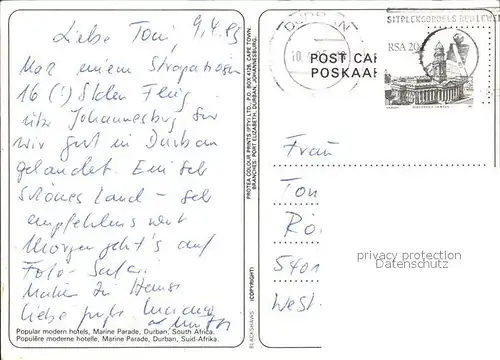 9.4.85
Liebe Toni,
Nach einem Strapaziösen
16 (!) Stden Flug
über Johannesburg sind
wir gut in Durban
gelandet. Ein sehr
schönes Land – sehr
empfehlenswert
Morgen geht's auf
Foto-Safari
zu Hause
Liebe
Popular modern hotels, Marine Parade, Durban, South Africa.
Populêre moderne hotelle, Marine Parade, Durban, Suid-Afrika.
PROTEA COLOUR PRINTS (PTY) LTD., P.O. BOX 4126, CAPE TOWN.
BRANCHES: PORT ELIZABETH, DURBAN, JOHANNESBURG.
BLACKSHAWS (COPYRIGHT)
SITPLEKGORDELS RED LEWENS
RSA 20
POST CAR
POSKAAR
Frau
Ton
Rö
5401
West-
privacy protection
Datenschutz